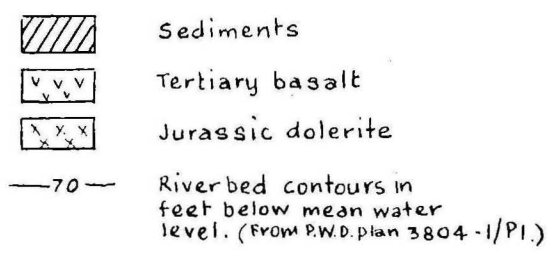 Sediments
Tertiary basalt
Jurassic dolerite
—70— Riverbed contours in
feet below mean water
level. (From P.W.D. plan 3804-1/P1.)